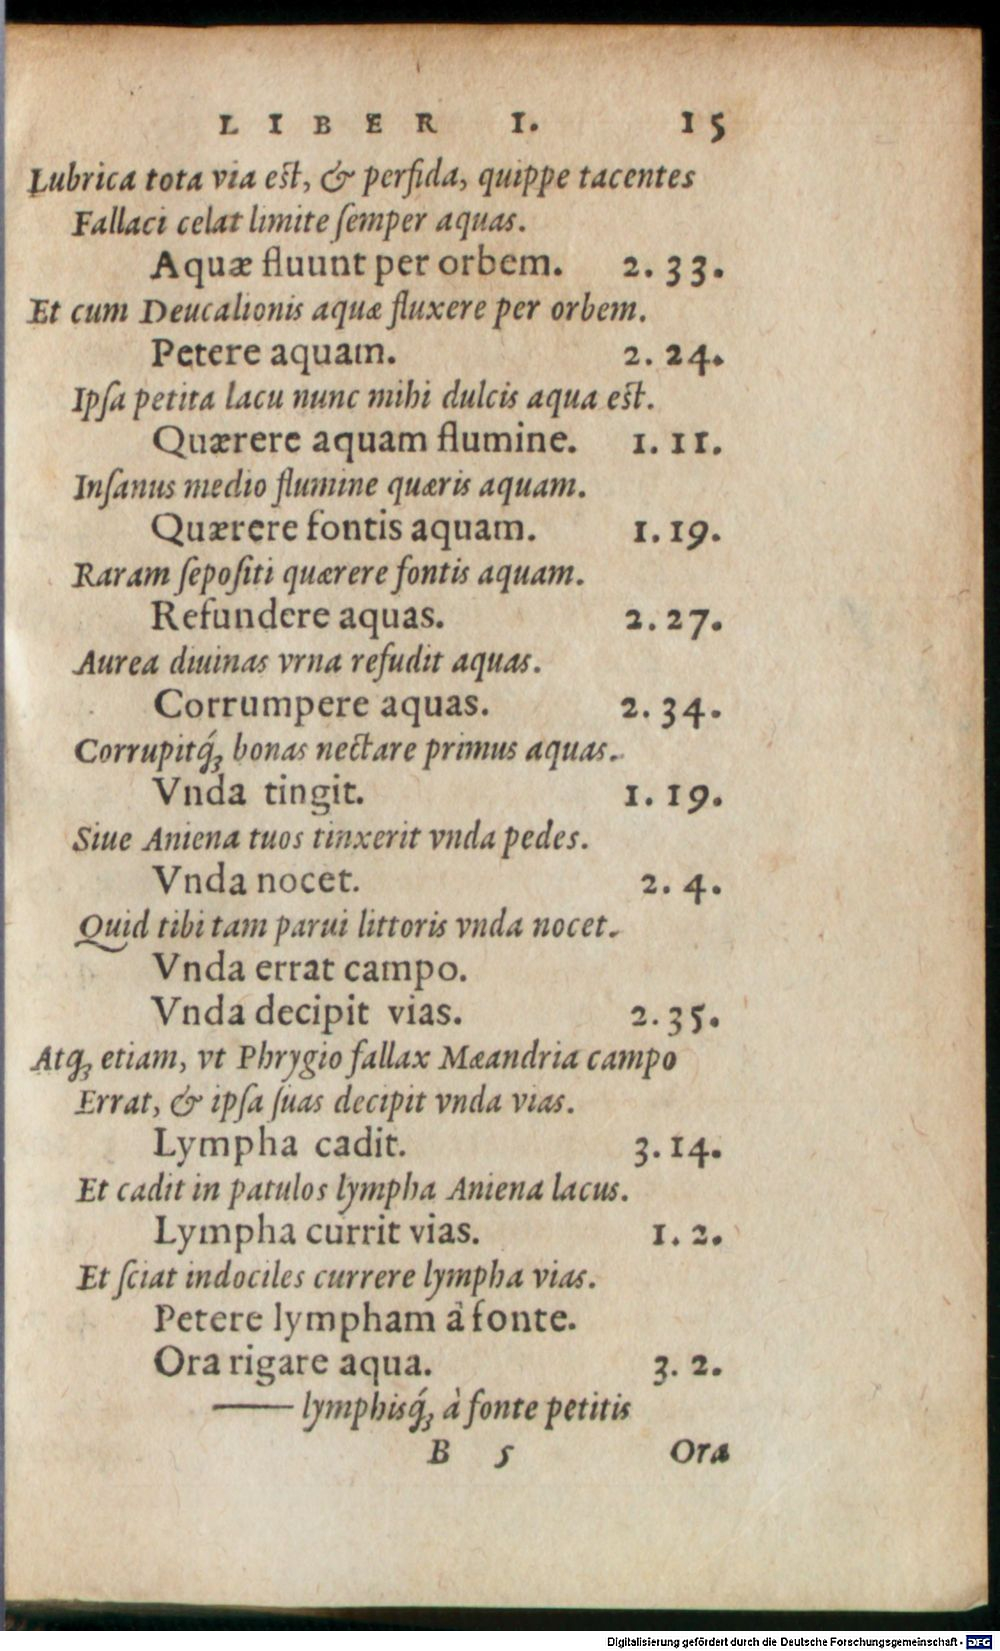 LIBER I. 15
Lubrica tota via est, & perfida, quippe tacentes
Fallaci celat limite ſemper aquas.
Aquæ fluunt per orbem. 2. 33.
Et cum Deucalionis aquæ fluxere per orbem.
Petere aquam. 2. 24.
Ipſa petita lacu nunc mihi dulcis aqua est.
Quærere aquam flumine. 1. 11.
Inſanus medio flumine quæris aquam.
Quærere fontis aquam. 1. 19.
Raram ſepoſiti quærere fontis aquam.
Refundere aquas. 2. 27.
Aurea diuinas vrna refudit aquas.
Corrumpere aquas. 2. 34.
Corrupitq́ꝫ bonas nectare primus aquas.
Vnda tingit. 1. 19.
Siue Aniena tuos tinxerit vnda pedes.
Vnda nocet. 2. 4.
Quid tibi tam parui littoris vnda nocet.
Vnda errat campo.
Vnda decipit vias. 2. 35.
Atqꝫ etiam, vt Phrygio fallax Mæandria campo
Errat, & ipſa ſuas decipit vnda vias.
Lympha cadit. 3. 14.
Et cadit in patulos lympha Aniena lacus.
Lympha currit vias. 1. 2.
Et ſciat indociles currere lympha vias.
Petere lympham à fonte.
Ora rigare aqua. 3. 2.
—— lymphisq́ꝫ à fonte petitis
B 5 Ora
Digitalisierung gefördert durch die Deutsche Forschungsgemeinschaft - DFG